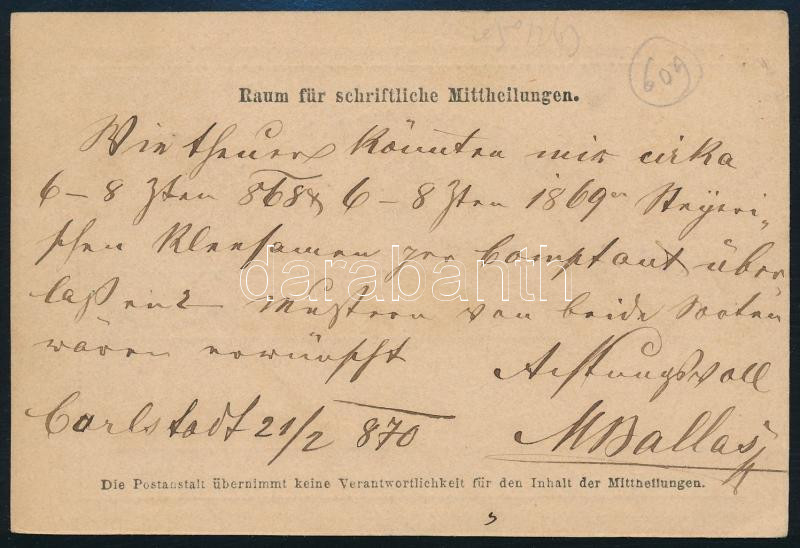 609
Raum für schriftliche Mittheilungen.
Wie theuer könnten mir cirka
6–8 Zten 868er 6–8 Zten 1869er Steyeri-
schen Kleesamen per Comptant über
laßen? Mustern von beide Sorten
wären erwünscht
Achtungsvoll
Carlstadt 21/2 870
MBallas
Die Postanstalt übernimmt keine Verantwortlichkeit für den Inhalt der Mittheilungen.
darabanth